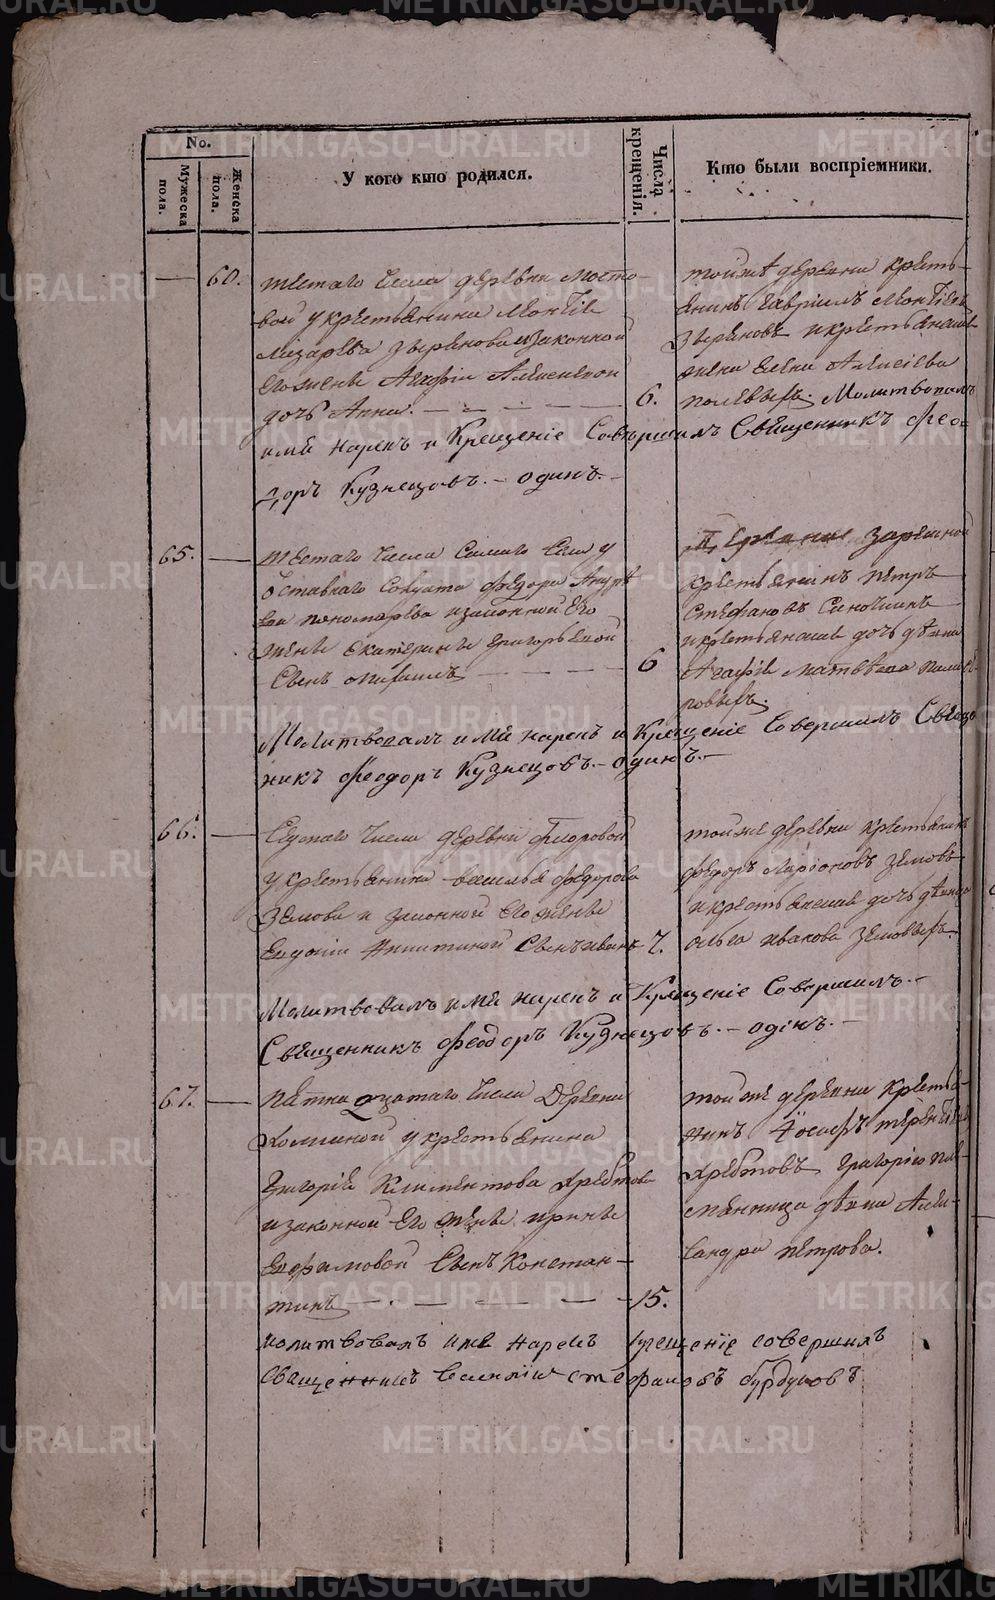 No.
Мужеска пола.
Женска пола.
У кого кто родился.
Числа крещенія.
Кто были воспріемники.
60. шестаго числа деревни Мосто-
вой у крестьянина
Лазарева Зырянова и законной
его жены Агафіи Алексеевой
дочь Анна. 6.
тойже деревни кресть-
янинъ Гавріилъ
Зыряновъ и крестьянская
жена Елена Алексіева
Молитвовалъ
имя нарекъ и Крещеніе Совершилъ Священникъ Фео-
доръ Кузнецовъ. – одинъ. –
65. шестаго числа Самаго Села у
отставнаго Солдата Федора Андре
ева пономарева и законной Его
жены Екатерины Григорьевой
Сынъ 6
Заречной
крестьянинъ петръ
Стефановъ
и крестьянская дочь девица
Агафія Матвеева
Молитвовалъ имя нарекъ и Крещеніе Совершилъ Священ
никъ Феодоръ Кузнецовъ. – одинъ. –
66. Седмаго числа деревни Федоровой
у крестьянина василья Федорова
Земова и законной Его жены
Евдокіи Никитиной Сынъ иванъ 7.
тойже деревни крестьянинъ
Федоръ Ларіоновъ Земовъ
и крестьянская дочь девица
ольга иванова
Молитвовалъ имя нарекъ и Крещеніе Совершилъ. –
Священникъ Феодоръ Кузнецовъ. – одінъ. –
67. пятнадцатаго числа Деревни
у крестьянина
Григорія Климентова Хребтова
и законной Его жены ирины
Ефимовой Сынъ Констан-
тинъ 15.
тойже деревни кресть-
янинъ Іосифъ терентьевъ
Хребтовъ Григорію пле-
мянница девица Алек-
сандра петрова.
молитвовалъ имя нарекъ крещеніе совершилъ
священникъ василій стефановъ бурдуковъ
METRIKI.GASO-URAL.RU